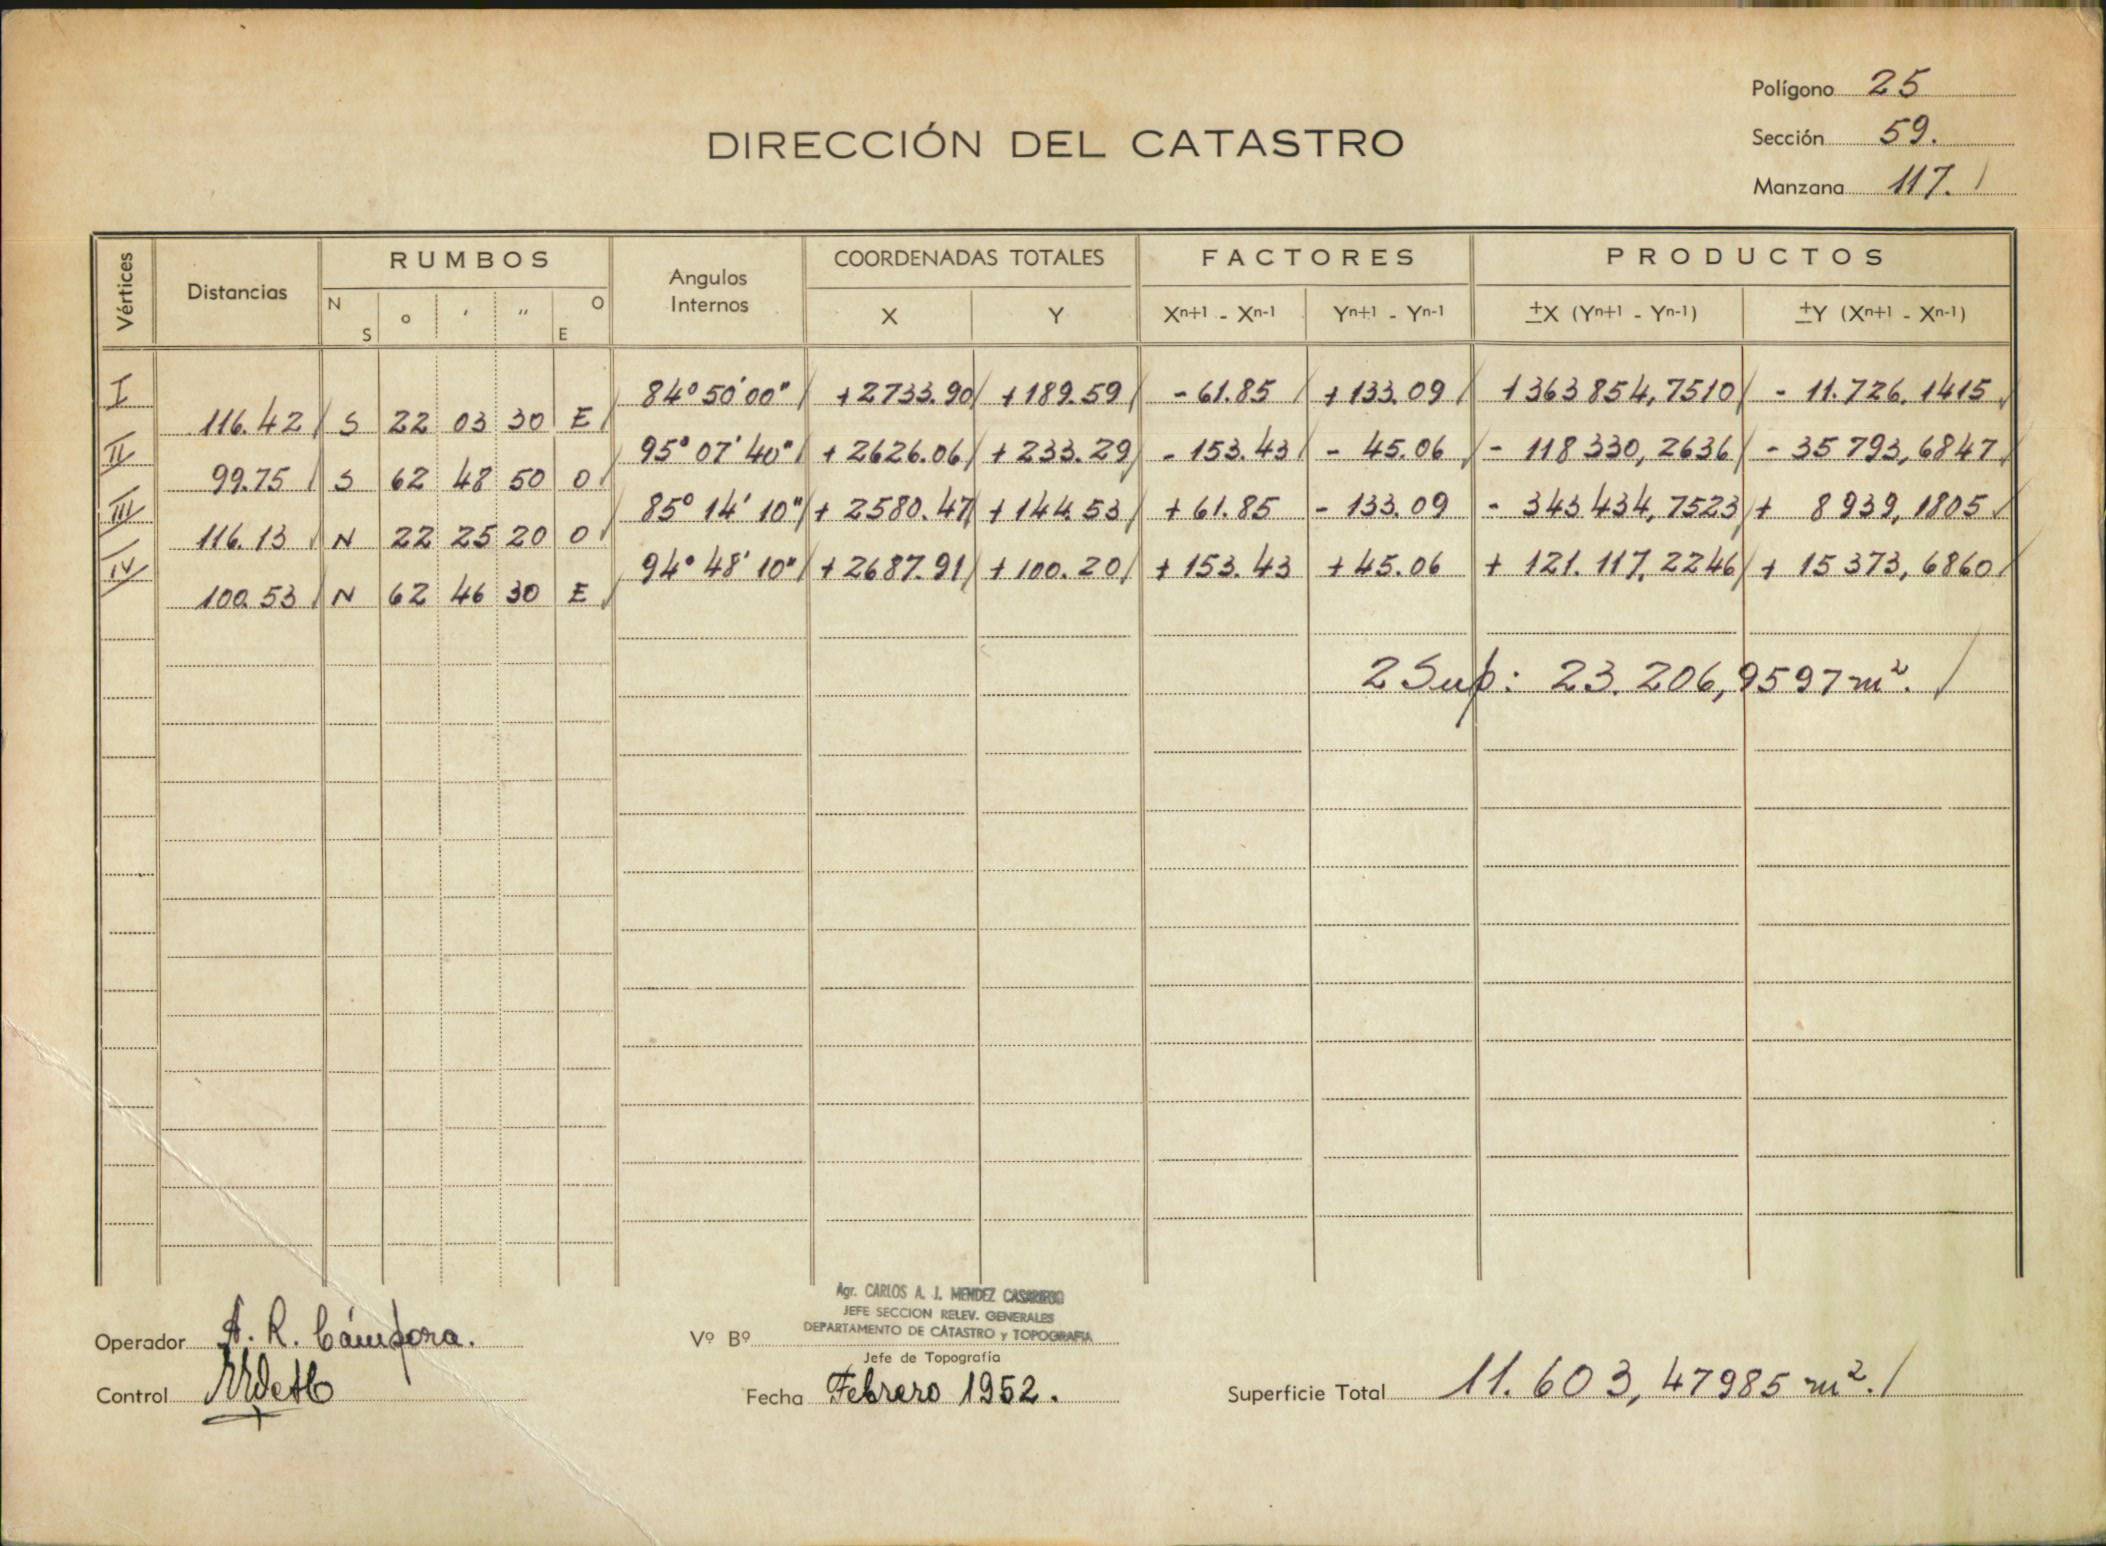 Polígono 25
DIRECCIÓN DEL CATASTRO
Sección 59.
Manzana 117.
Vértices Distancias RUMBOS Angulos Internos COORDENADAS TOTALES FACTORES PRODUCTOS
N S o ' '' E O X Y Xn+1 - Xn-1 Yn+1 - Yn-1 ±X (Yn+1 - Yn-1) ±Y (Xn+1 - Xn-1)
I 84° 50' 00" +2733.90 +189.59 -61.85 +133.09 +363854,7510 - 11.726.1415
116.42 S 22 03 30 E
II 95° 07' 40" +2626.06 +233.29 -153.43 -45.06 -118330,2636 -35793,6847
99.75 S 62 48 50 O
III 85° 14' 10" +2580.47 +144.53 +61.85 -133.09 -343434,7523 + 8939,1805
116.13 N 22 25 20 O
IV 94° 48' 10" +2687.91 +100.20 +153.43 +45.06 +121.117,2246 +15373,6860
100.53 N 62 46 30 E
2 Sup: 23.206,9597 m².
Agr. CARLOS A. J. MENDEZ CASARIEGO
JEFE SECCION RELEV. GENERALES
DEPARTAMENTO DE CATASTRO y TOPOGRAFIA
Operador A. R. Cámpora. Vº Bº
Jefe de Topografía
Control Fecha Febrero 1952. Superficie Total 11.603,47985 m².